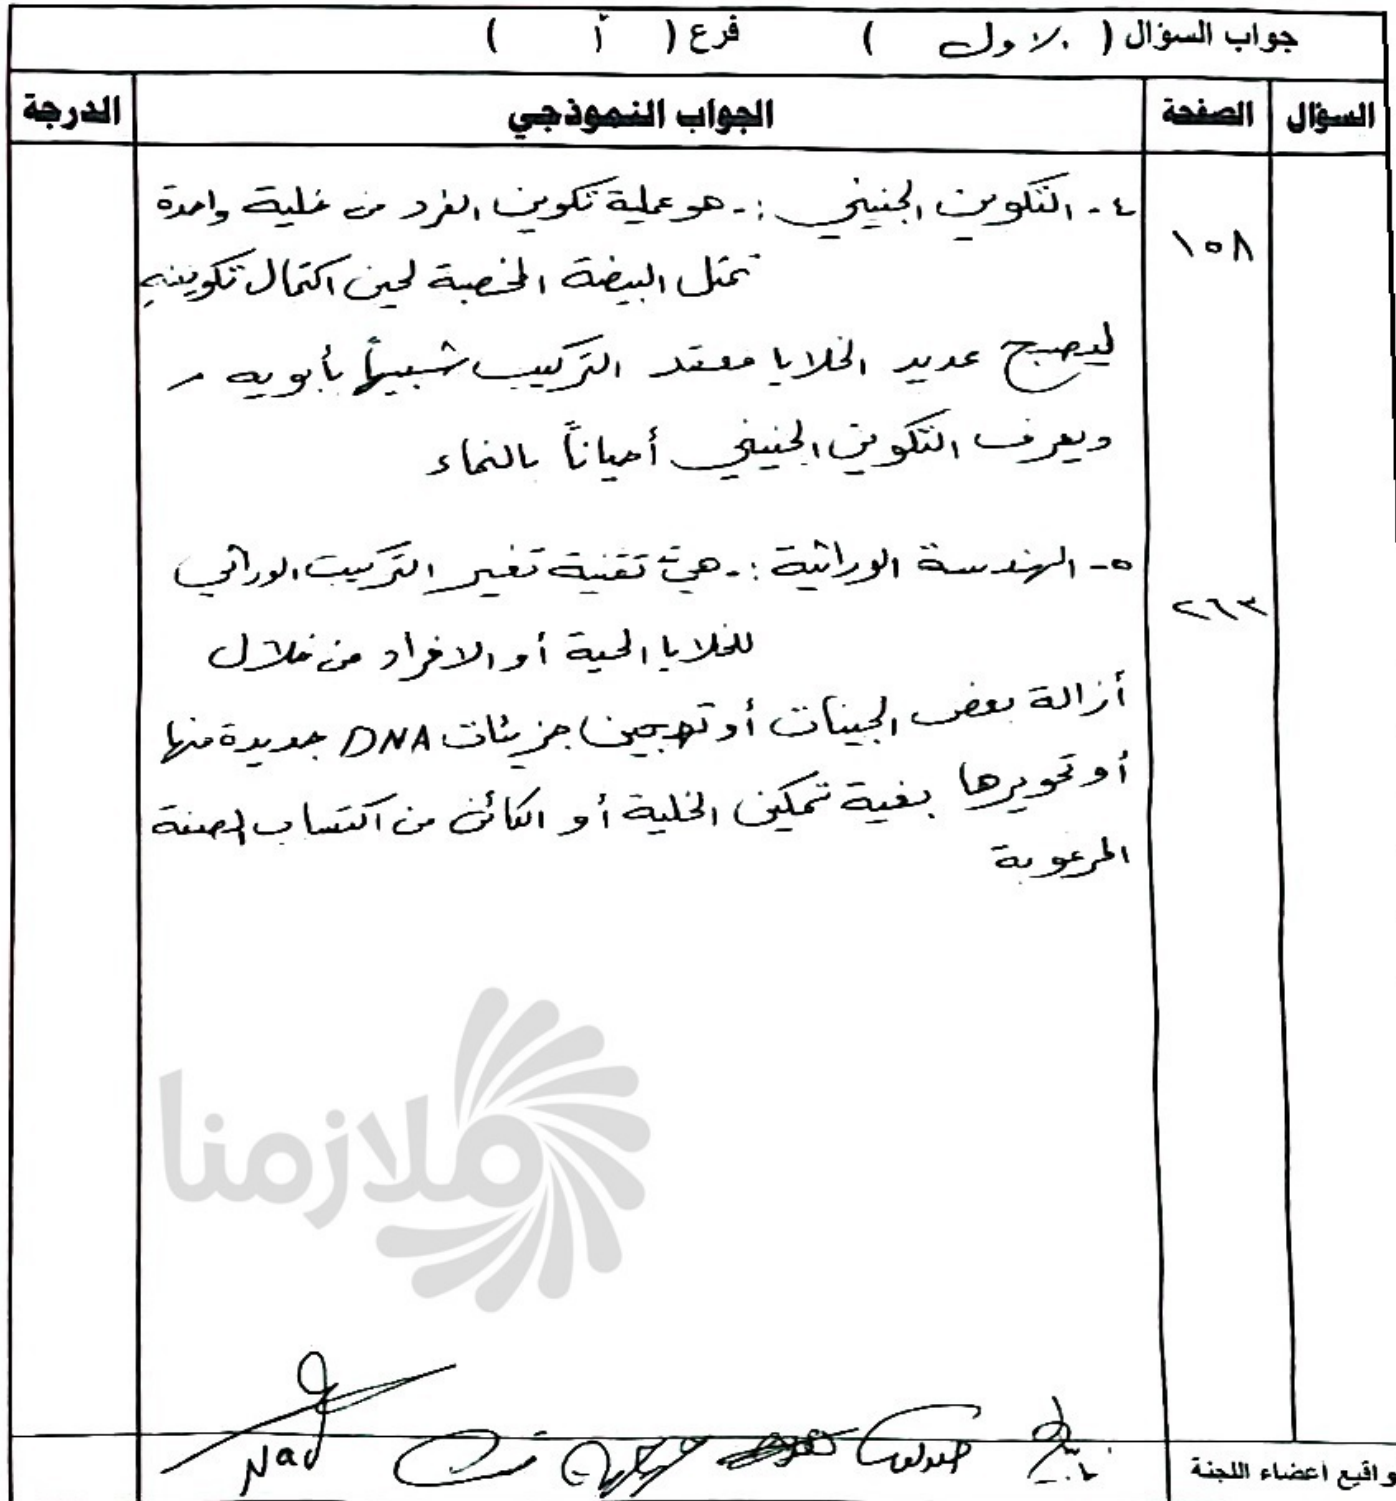 جواب السؤال ( الاول ) فرع ( أ )
السؤال الصفحة الجواب النموذجي الدرجة
٤- التكوين الجنيني :- هو عملية تكوين الفرد من خلية واحدة
١٥٨
تمثل البيضة المخصبة لحين اكتمال تكوينه
ليصبح عديد الخلايا معقد التركيب شبيهاً بأبويه
ويعرف التكوين الجنيني أحياناً بالنماء
٥- الهندسة الوراثية :- هي تقنية تغير التركيب الوراثي
٢٦٣
للخلايا الحية أو الافراد من خلال
أزالة بعض الجينات أو تهجين جزيئات DNA جديدة منها
أو تحويرها بغية تمكين الخلية أو الكائن من اكتساب الصفة
المرغوبة
ملازمنا
واقيع اعضاء اللجنة